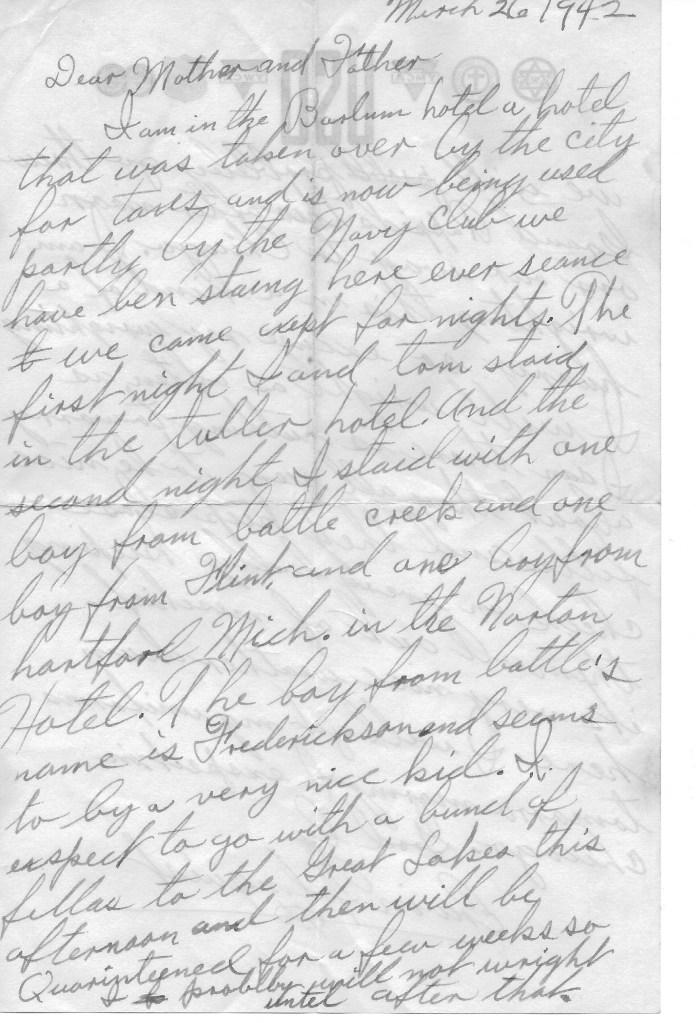 March 26 1942
Dear Mother and Father
I am in the Barlum hotel a hotel
that was taken over by the city
for taxes and is now being used
partly by the Navy Club we
have ben staing here ever seance
we came exept for nights. The
first night I and tom staid
in the tuller hotel. And the
second night I staid with one
boy from battle creek and one
boy from Flint, and one boy from
hartford Mich. in the Norton
Hotel. The boy from battle's
name is Frederickson and seems
to by a very nice kid. I
expect to go with a bunch of
fellas to the Great Lakes this
afternoon and then will be
Quarinteened for a few weeks so
I problby will not wright
until after that.